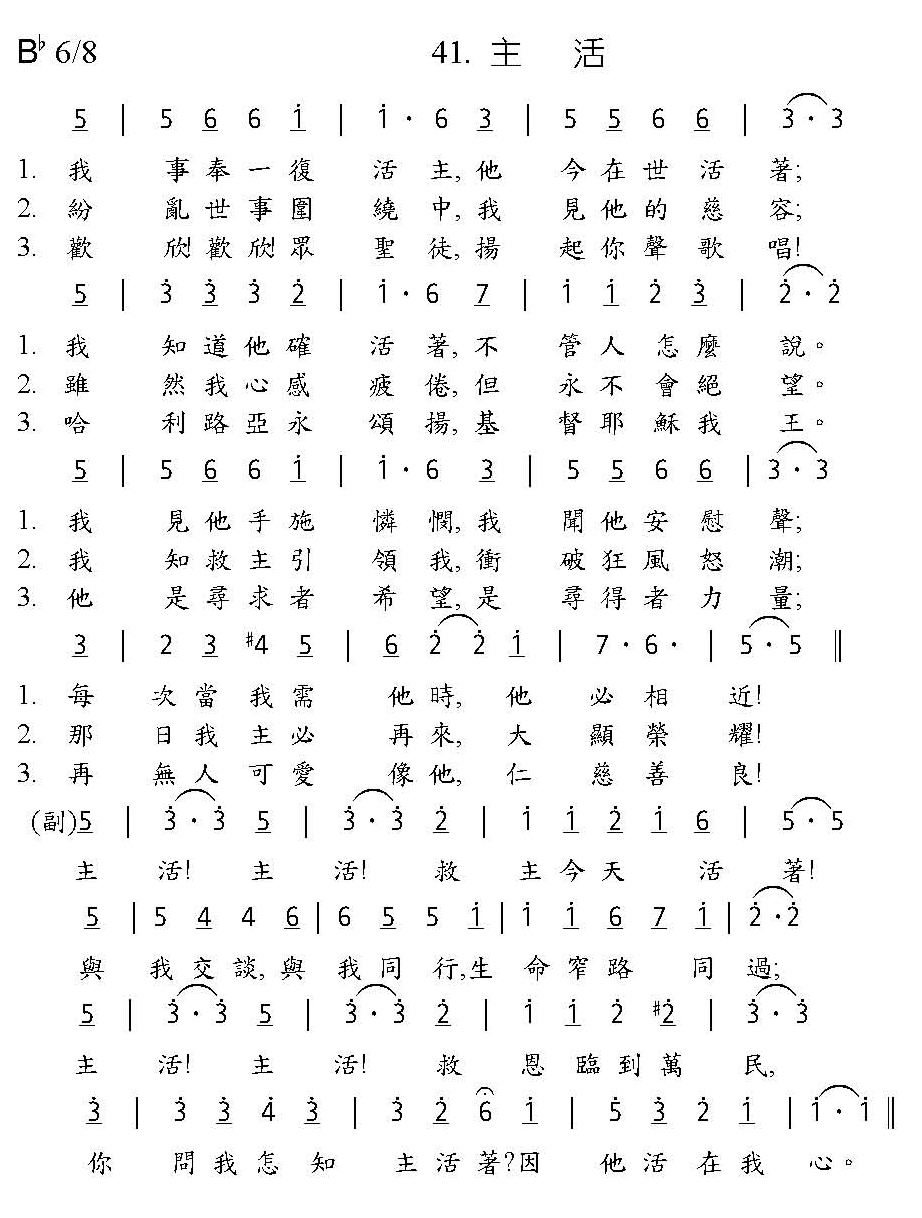 B♭ 6/8 41. 主 活
5 | 5 6 6 i | i · 6 3 | 5 5 6 6 | 3 · 3
1. 我 事奉一復 活 主, 他 今在世活 著;
2. 紛 亂世事圍 繞 中, 我 見他的慈 容;
3. 歡 欣!歡欣!眾 聖 徒, 揚 起你聲歌 唱!
5 | 3̇ 3̇ 3̇ 2̇ | i · 6 7 | i i 2̇ 3̇ | 2̇ · 2̇
1. 我 知道他確 活 著, 不 管人怎麼 說。
2. 雖 然我心感 疲 倦, 但 永不會絕 望。
3. 哈 利路亞永 頌 揚, 基 督耶穌我 王。
5 | 5 6 6 i | i · 6 3 | 5 5 6 6 | 3 · 3
1. 我 見他手施 憐 憫, 我 聞他安慰 聲;
2. 我 知救主引 領 我, 衝 破狂風怒 潮;
3. 他 是尋求者 希 望, 是 尋得者力 量;
3 | 2 3 #4 5 | 6 2̇ 2̇ i | 7 · 6 · | 5 · 5 ‖
1. 每 次當我需 他時, 他 必相 近!
2. 那 日我主必 再來, 大 顯榮 耀!
3. 再 無人可愛 像他, 仁 慈善 良!
(副)5 | 3̇ · 3̇ 5 | 3̇ · 3̇ 2̇ | i i 2̇ i 6 | 5 · 5
主 活! 主 活! 救 主今天 活 著!
5 | 5 4 4 6 | 6 5 5 i | i i 6 7 i | 2̇ · 2̇
與 我交談,與 我同行,生 命窄路 同 過;
5 | 3̇ · 3̇ 5 | 3̇ · 3̇ 2̇ | i i 2̇ #2̇ | 3̇ · 3̇
主 活! 主 活! 救 恩 臨到萬 民,
3̇ | 3̇ 3̇ 4̇ 3̇ | 3̇ 2̇ 6̇ i | 5̇ 3̇ 2̇ i | i · i ‖
你 問我怎知 主活著?因 他活在我 心。